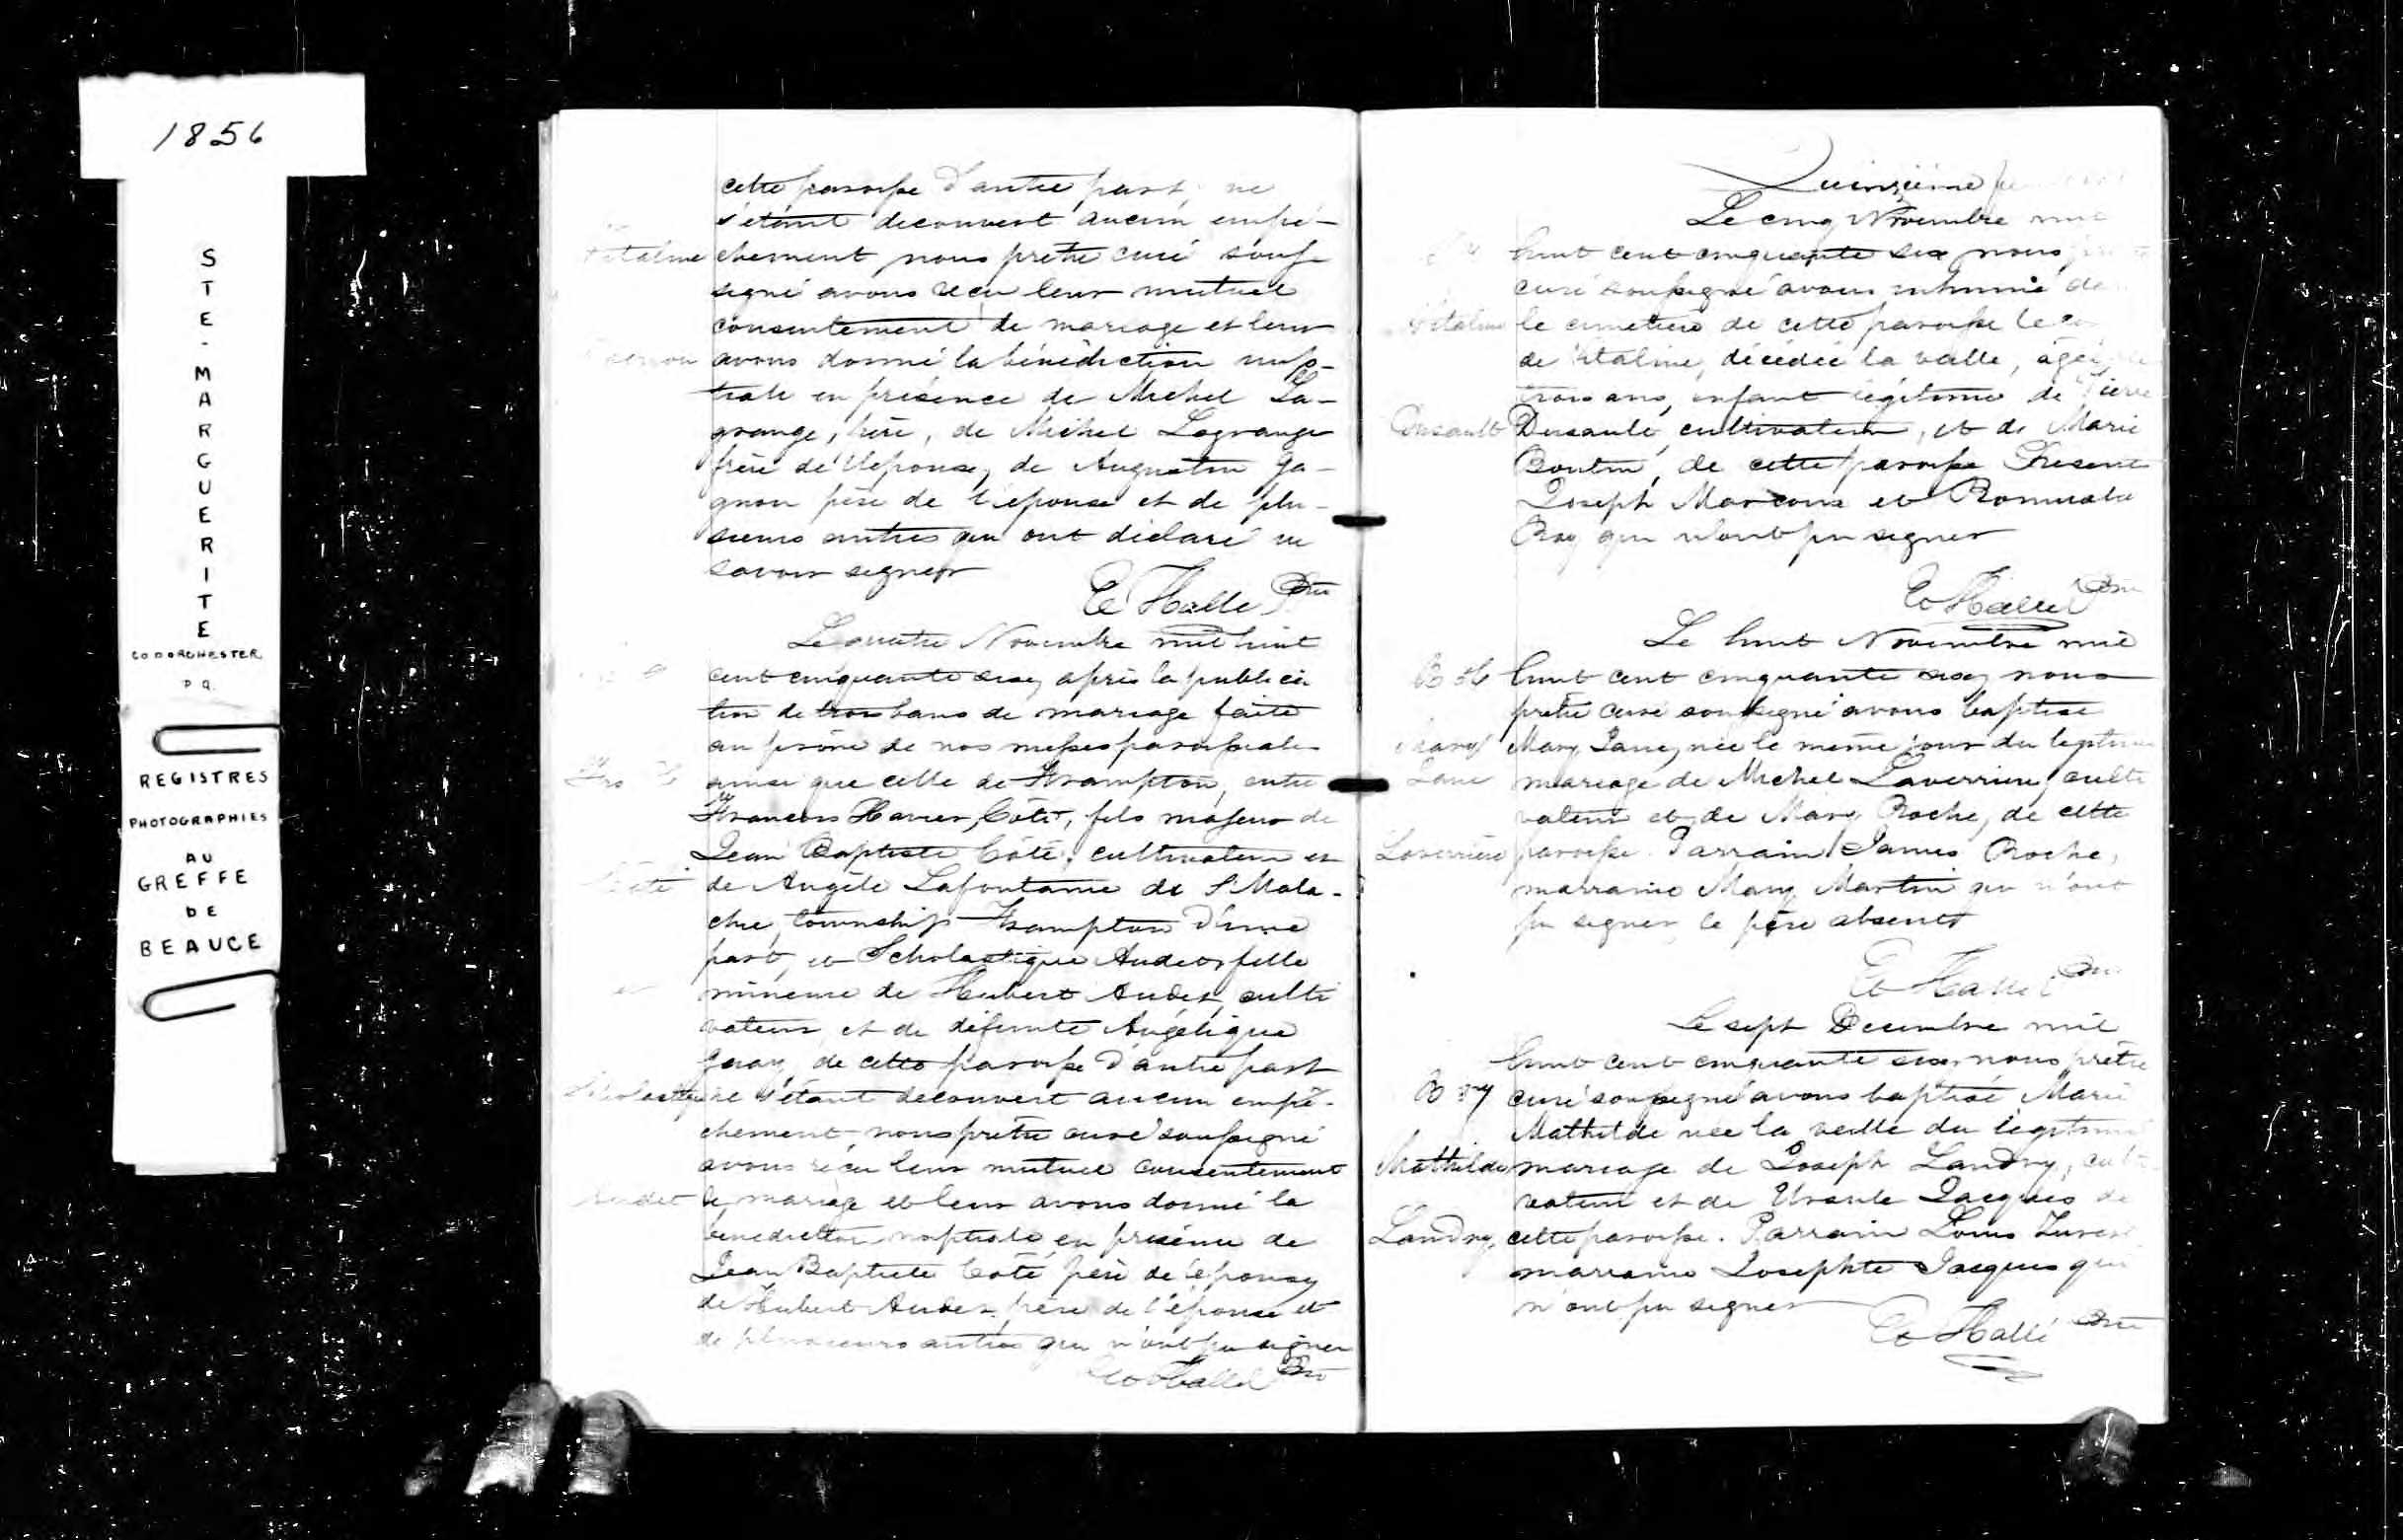 1856
STE-MARGUERITE
CO DORCHESTER
P Q.
REGISTRES
PHOTOGRAPHIES
AU
GREFFE
DE
BEAUCE
cette paroisse d'autre part; ne
s'étant decouvert aucun empê-
chement nous prêtre curé souss-
igné avons reçu leur mutuel
consentement de mariage et leur
avons donné la bénédiction nup-
tiale en présence de Michel La-
grange, père, de Michel Lagrange
frère de l'épouse, de Augustin Ga-
gnon père de l'épouse et de plu-
sieurs autres qui ont déclaré ne
savoir signer
Ed Hallé Ptre
Le quatre Novembre mil huit
cent cinquante six, après la publica
tion de trois bans de mariage faite
au prône de nos messes paroissiales
ainsi que celle de Frampton, entre
François Xavier Côté, fils majeur de
Jean Baptiste Côté, cultivateur et
Côté
de Angèle Lafontaine de St Mala-
chie, township Frampton d'une
part, et Scholastique Audet fille
mineure de Hubert Audet, culti
vateur et de défunte Angélique
de cette paroisse d'autre part
Scholastique
ne s'étant decouvert aucun empê-
chement, nous prêtre curé soussigné
avons reçu leur mutuel consentement
Audet
de mariage et leur avons donné la
bénédiction nuptiale en présence de
Jean Baptiste Côté père de l'époux,
de Hubert Audet père de l'épouse et
de plusieurs autres qui n'ont pu signer
Ed Hallé Ptre
Quinzième
Le cinq Novembre mil
huit cent cinquante six nous
curé soussigné avons inhumé de
Vitaline
le cimetière de cette paroisse le
de Vitaline, décédée la veille, âgée
trois ans, enfant légitime de Pierre
Dusault
Dusault cultivateur, et de Marie
Boutin, de cette paroisse Present
Joseph Marcoux et Romuald
Roy qui n'ont pu signer
Ed Hallé Ptre
Le huit Novembre mil
B 56
huit cent cinquante six, nous
prêtre curé soussigné avons baptisé
Mary
Mary Jane, née le même jour du legitime
Jane
mariage de Michel Laverrière, culti
vateur et de Mary Roche, de cette
Laverrière
paroisse. Parrain James Roche,
marraine Mary Martin qui n'ont
pu signer, le père absent
Ed Hallé Ptre
Le sept Décembre mil
huit cent cinquante six, nous prêtre
B 57
curé soussigné avons baptisé Marie
Mathilde née la veille du légitime
Mathilde
mariage de Joseph Landry, culti
vateur et de Ursule Jacques de
Landry
cette paroisse. Parrain Louis
marraine Josephte Jacques qui
n'ont pu signer
Ed Hallé Ptre